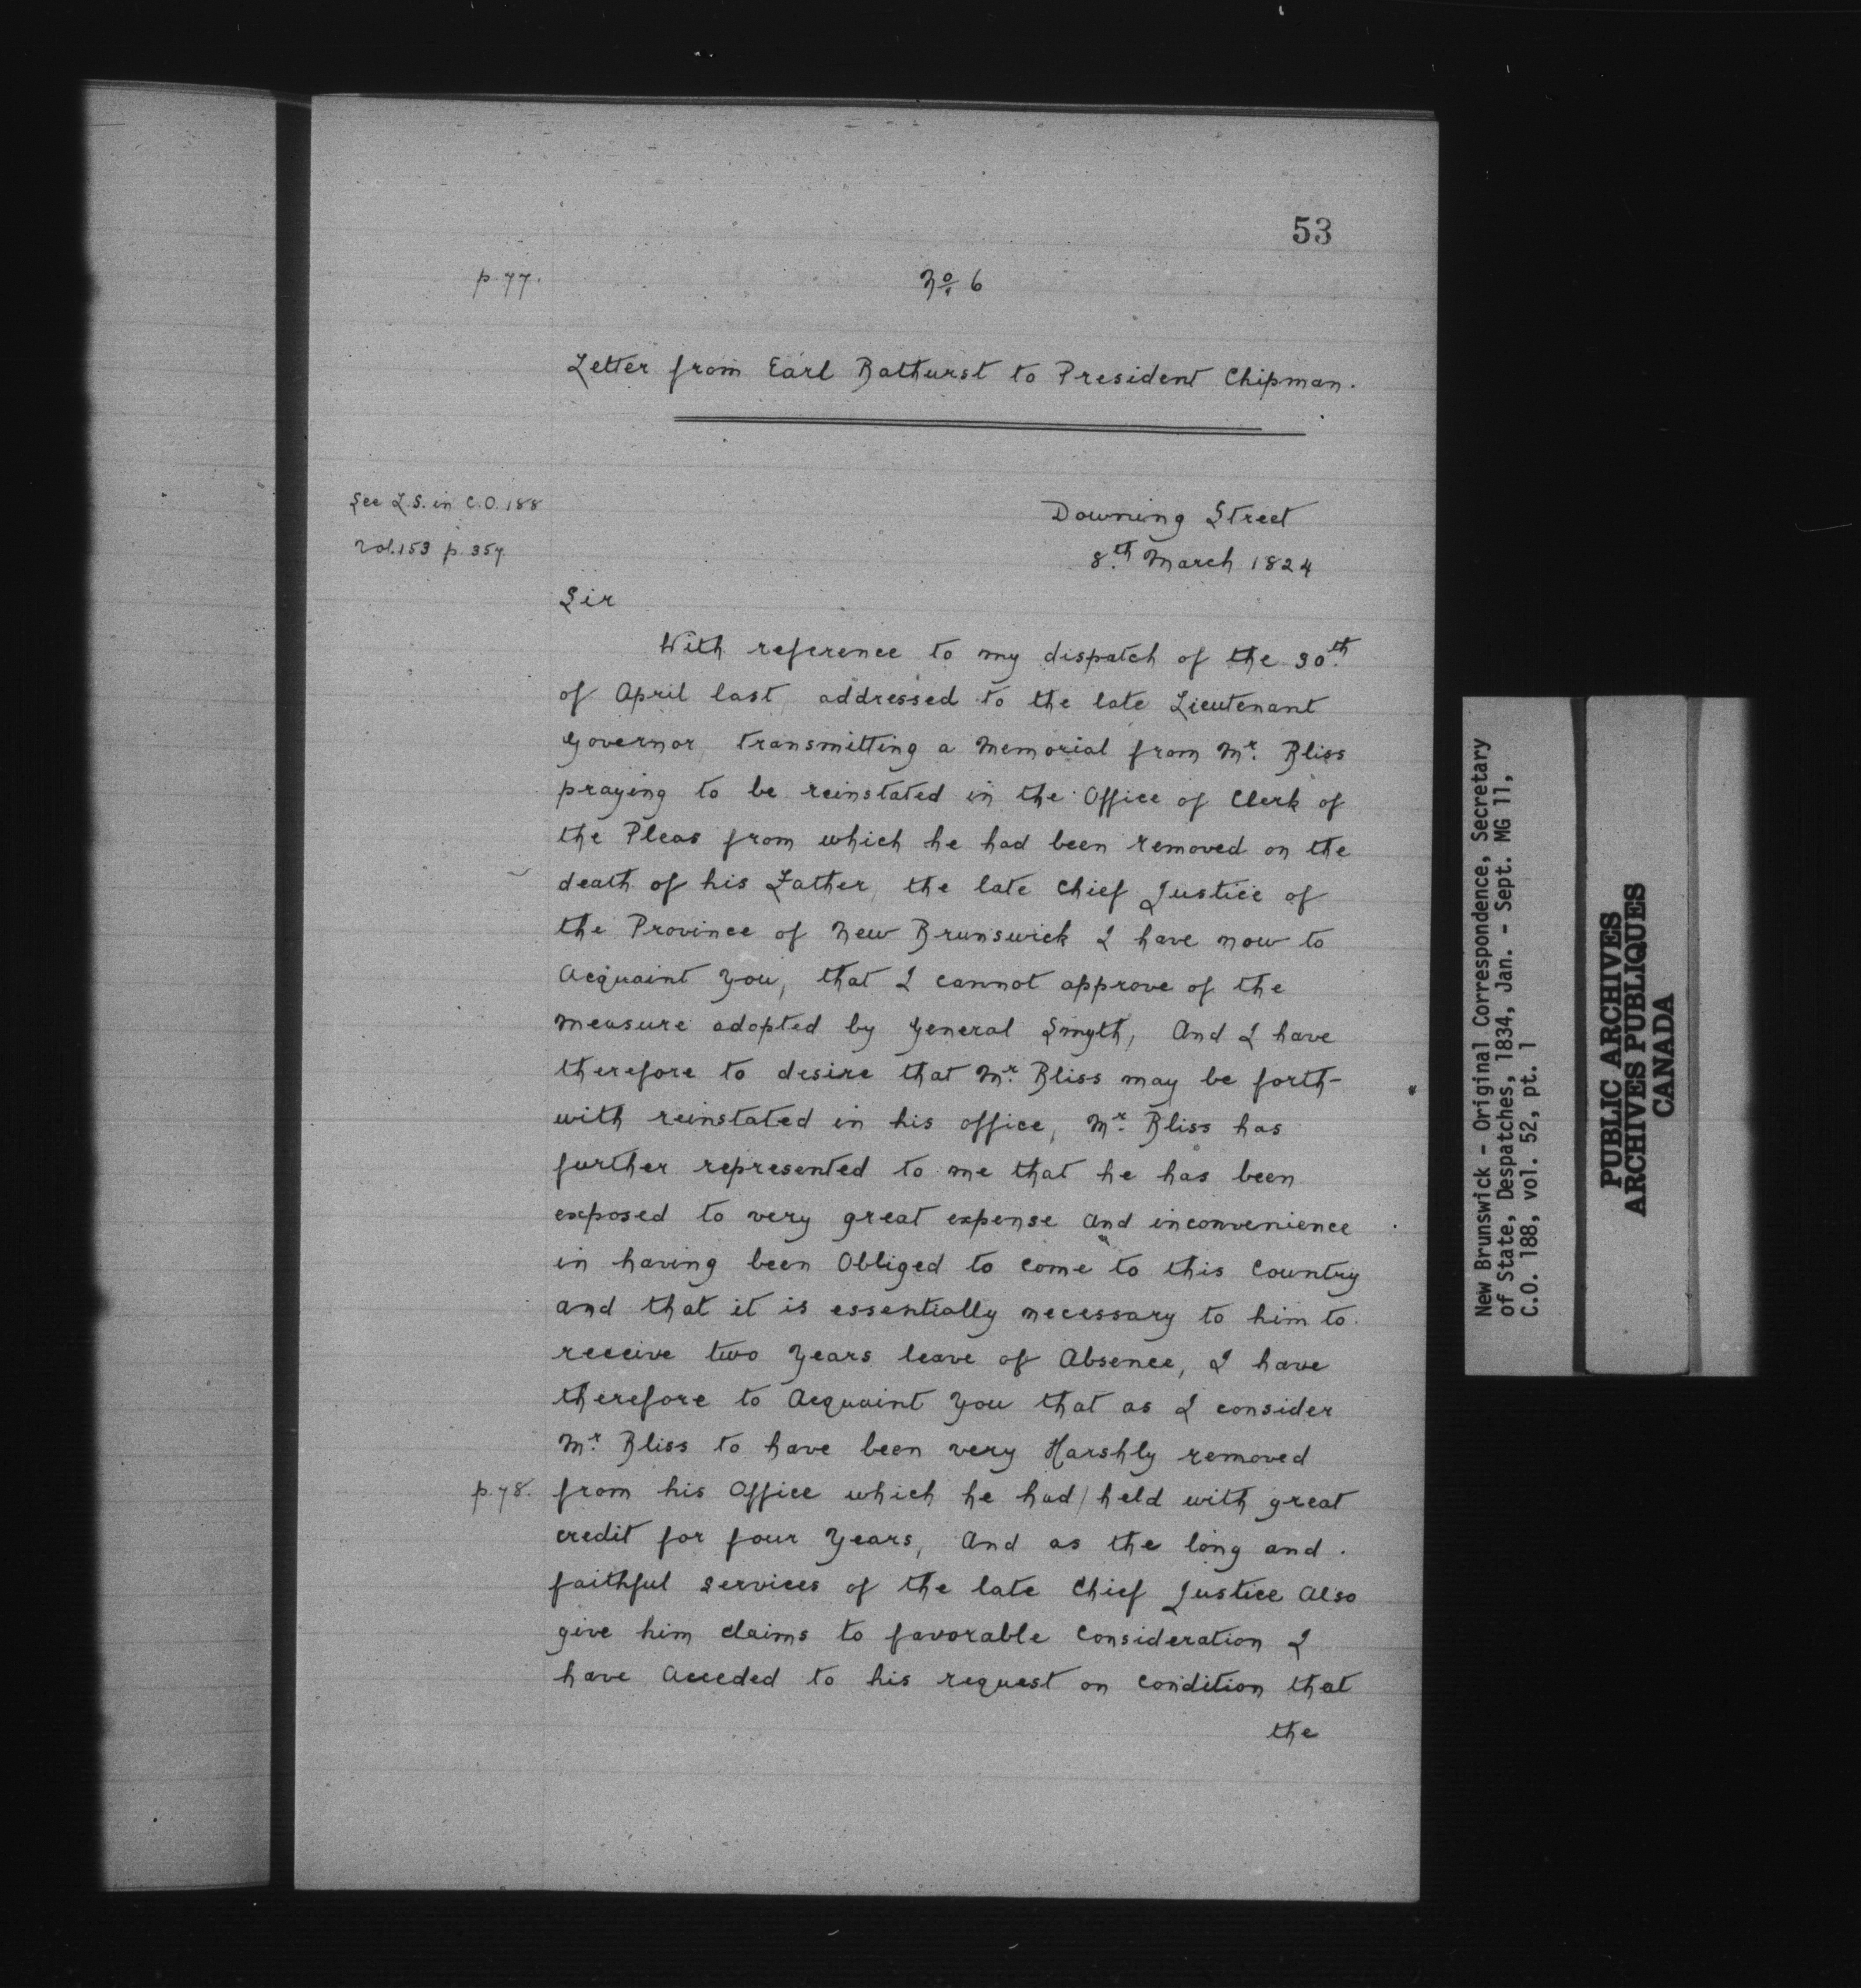 53
p. 77.
No. 6
Letter from Earl Bathurst to President Chipman.
See L.S. in C.O. 188
Vol. 153 p. 357
Downing Street
8.th March 1824
Sir
With reference to my dispatch of the 30.th
of April last, addressed to the late Lieutenant
Governor, transmitting a Memorial from Mr. Bliss
praying to be reinstated in the Office of Clerk of
the Pleas from which he had been removed on the
death of his Father, the late Chief Justice of
the Province of New Brunswick I have now to
Acquaint You, that I cannot approve of the
Measure adopted by General Smyth, And I have
therefore to desire that Mr. Bliss may be forth-
with reinstated in his office, Mr. Bliss has
further represented to me that he has been
exposed to very great expense and inconvenience
in having been Obliged to Come to this Country
and that it is essentially necessary to him to
receive two Years leave of Absence, I have
therefore to Acquaint You that as I consider
Mr. Bliss to have been very Harshly removed
p. 78. from his Office which he had/ held with great
credit for four Years, And as the long and
faithful services of the late Chief Justice Also
give him claims to favorable Consideration I
have Acceded to his request on Condition that
the
New Brunswick - Original Correspondence, Secretary
of State, Despatches, 1834, Jan. - Sept. MG 11,
C.O. 188, vol. 52, pt. 1
PUBLIC ARCHIVES
ARCHIVES PUBLIQUES
CANADA